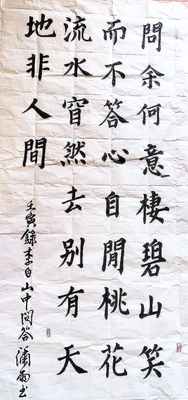 問余何意棲碧山笑
而不答心自閒桃花
流水窅然去别有天
地非人間
壬寅錄李白山中問答